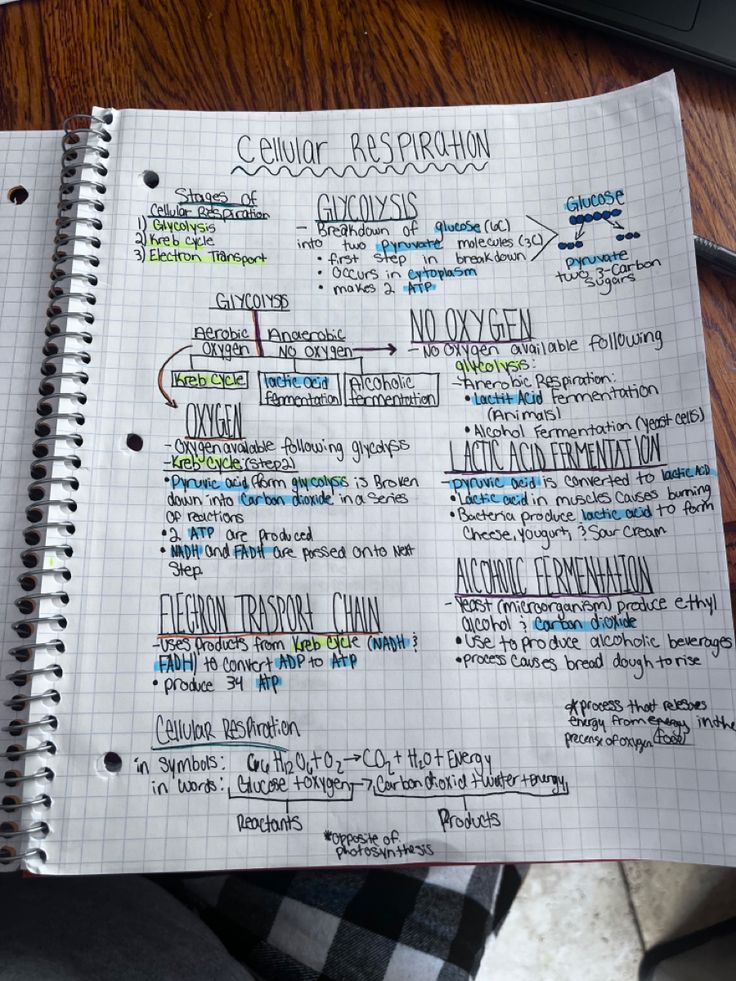 Cellular Respiration
Stages of
Cellular Respiration
1) Glycolysis
2) Kreb Cycle
3) Electron Transport
GLYCOLYSIS
- Breakdown of glucose (6C)
into two pyruvate molecules (3C)
• first step in breakdown
• occurs in cytoplasm
• makes 2 ATP
Glucose
pyruvate
two 3-Carbon
sugars
GLYCOLYSIS
Aerobic
Oxygen
Anaerobic
NO OXYGEN
Kreb Cycle
lactic acid
fermentation
Alcoholic
fermentation
NO OXYGEN
- No oxygen available following
glycolysis:
- Anerobic Respiration:
• Lactit Acid Fermentation
(Animals)
• Alcohol Fermentation (yeast cells)
OXYGEN
- Oxygen available following glycolysis
- Kreb Cycle (Step 2)
• Pyruvic acid form glycolysis is Broken
down into Carbon dioxide in a Series
of reactions
• 2 ATP are produced
• NADH and FADH are passed onto Next
Step
LACTIC ACID FERMENTATION
- pyruvic acid is converted to lactic Acid
• Lactic acid in muscles causes burning
• Bacteria produce lactic acid to form
Cheese, yougurt, & Sour Cream
ALCOHOLIC FERMENTATION
- yeast (microorganism) produce ethyl
alcohol & Carbon dioxide
• use to produce alcoholic beverages
• process causes bread dough to rise
ELECTRON TRASPORT CHAIN
- uses products from Kreb Cycle (NADH &
FADH) to convert ADP to ATP
• produce 34 ATP
*process that releases
energy from energy in the
precense of oxygen (food)
Cellular Respiration
in symbols: C6H12O6+O2→CO2+H2O+Energy
in words: Glucose+oxygen→Carbon dioxid+Water+Energy
Reactants
Products
*opposite of
photosynthesis